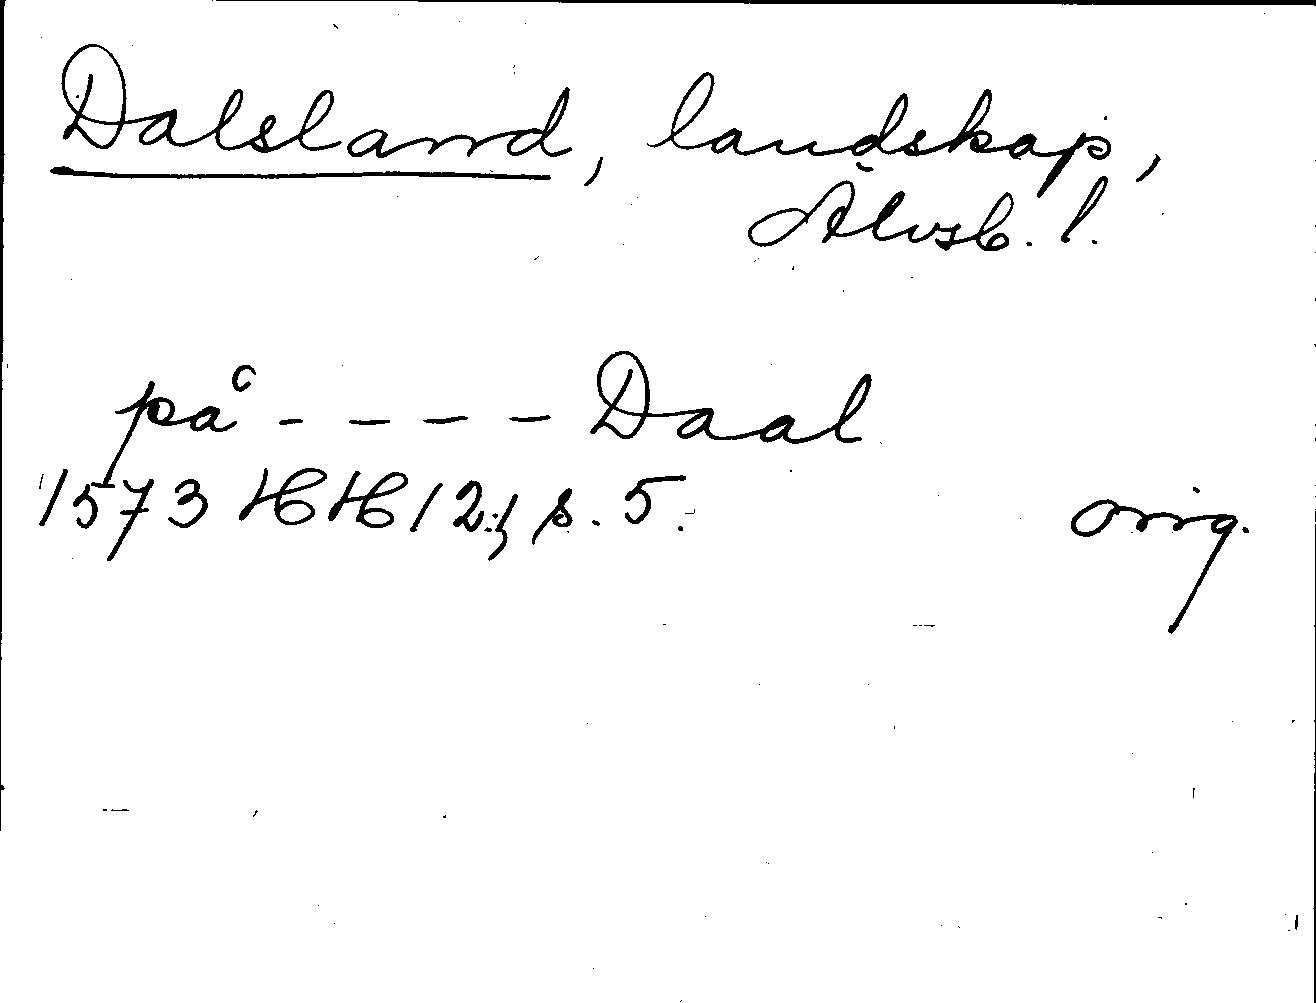 Dalsland, landskap,
Älvsb. l.
på - - - - Daal
1573 HH 12:, s. 5. orig.